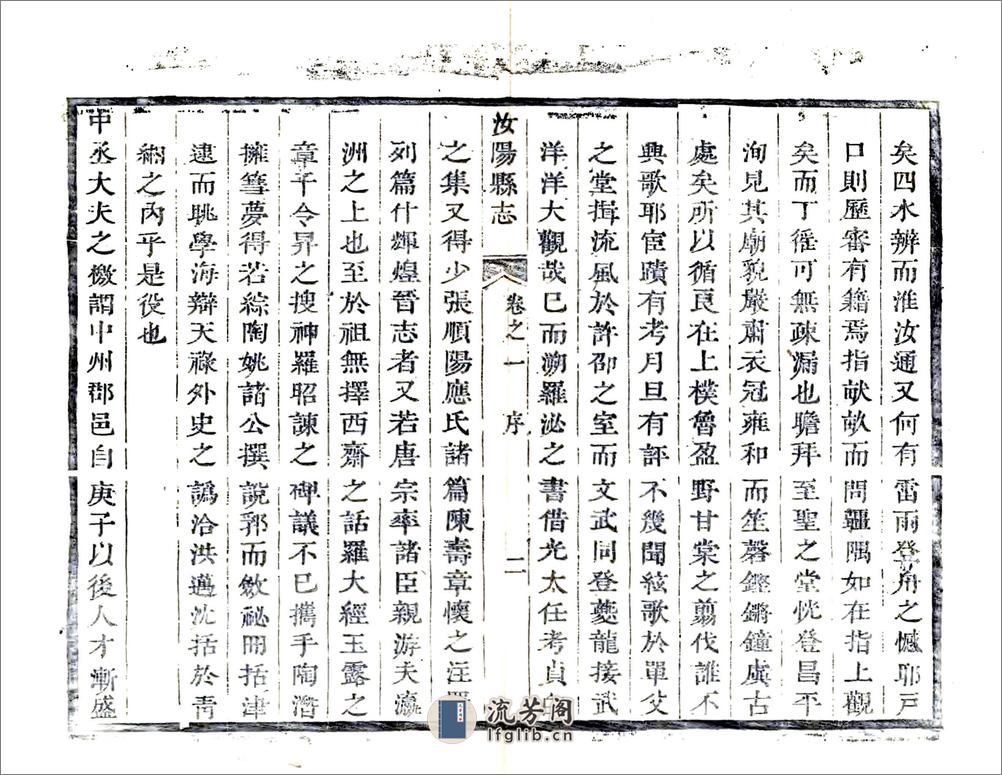 矣四水辨而淮汝通又何有雷雨登舟之憾耶戸
口則歷審有籍焉指献畝而問疆隅如在指上觀
矣而丁徭可無疎漏也瞻拜至聖之堂恍登昌平
洵見其廟貌嚴肅衣冠雍和而笙磬鏗鏘鐘虡古
處矣所以循良在上樸魯盈野甘棠之翦伐誰不
興歌耶宦蹟有考月旦有評不幾聞絃歌於單父
之堂揖流風於許邵之室而文武同登夔龍接武
洋洋大觀哉已而溯羅泌之書借光太任考貞
汝陽縣志
卷之一 序 二
之集又得少張順陽應氏諸篇陳壽章懷之注
列篇什輝煌晉志者又若唐宗率諸臣親游夫瀛
洲之上也至於祖無擇西齋之話羅大經玉露之
章干令昇之搜神羅昭諫之碑議不巳攜手陶潛
擁篲夢得若綜陶姚諸公撰說郛而斂祕冊括津
逮而眺學海辯天祿外史之譌洽洪邁沈括於青
緗之內乎是役也
中丞大夫之檄謂中州郡邑自庚子以後人才漸盛
流芳阁
lfglib.cn